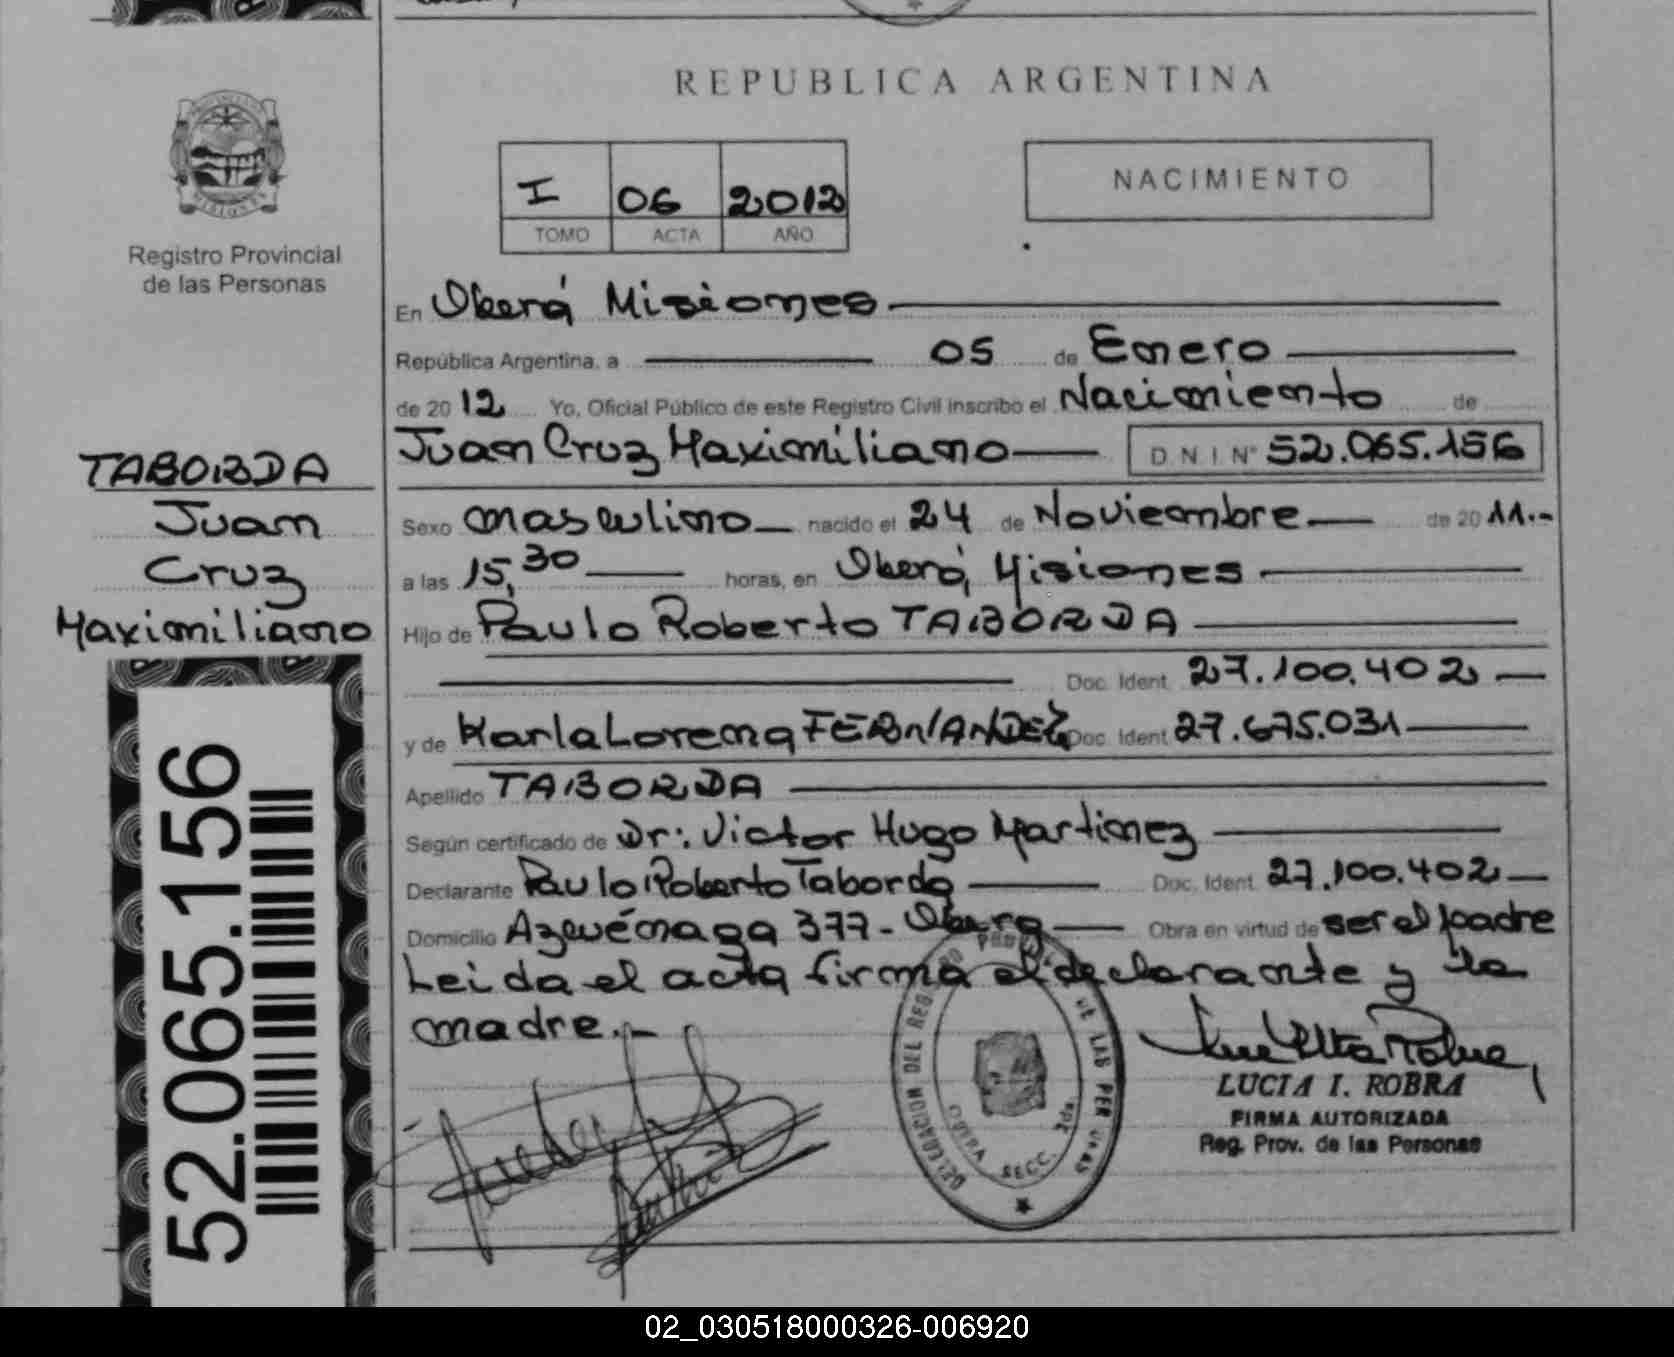 REPUBLICA ARGENTINA
I 06 2012
TOMO ACTA AÑO
NACIMIENTO
Registro Provincial
de las Personas
TABORDA
Juan
Cruz
Maximiliano
52.065.156
En Oberá Misiones
República Argentina, a 05 de Enero
de 2012 Yo, Oficial Público de este Registro Civil inscribo el Nacimiento de
Juan Cruz Maximiliano D N I Nº 52.065.156
Sexo masculino nacido el 24 de Noviembre de 2011.-
a las 15,30 horas, en Oberá, Misiones
Hijo de Paulo Roberto TABORDA
Doc. Ident. 27.100.402
y de Karla Lorena FERNANDEZ Doc. Ident. 27.675.031
Apellido TABORDA
Según certificado de Dr: Victor Hugo Martinez
Declarante Paulo Roberto Taborda Doc. Ident. 27.100.402
Domicilio Azcuénaga 377 - Oberá Obra en virtud de ser el padre
Leida el acta firma el declarante y la
madre.-
DELEGACION DEL REG PROV DE LAS PERSONAS
OBERA SECC. 2da.
LUCIA I. ROBRA
FIRMA AUTORIZADA
Reg. Prov. de las Personas
02_030518000326-006920